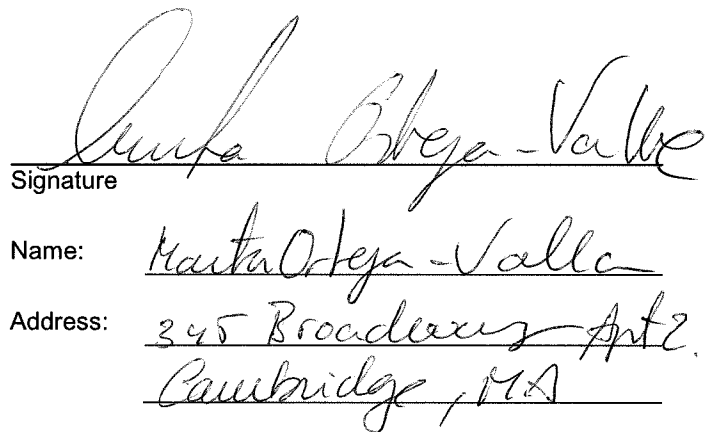 Marta Ortega-Valle
Signature
Name: Marta Ortega-Valle
Address: 345 Broadway Apt 2.
Cambridge, MA